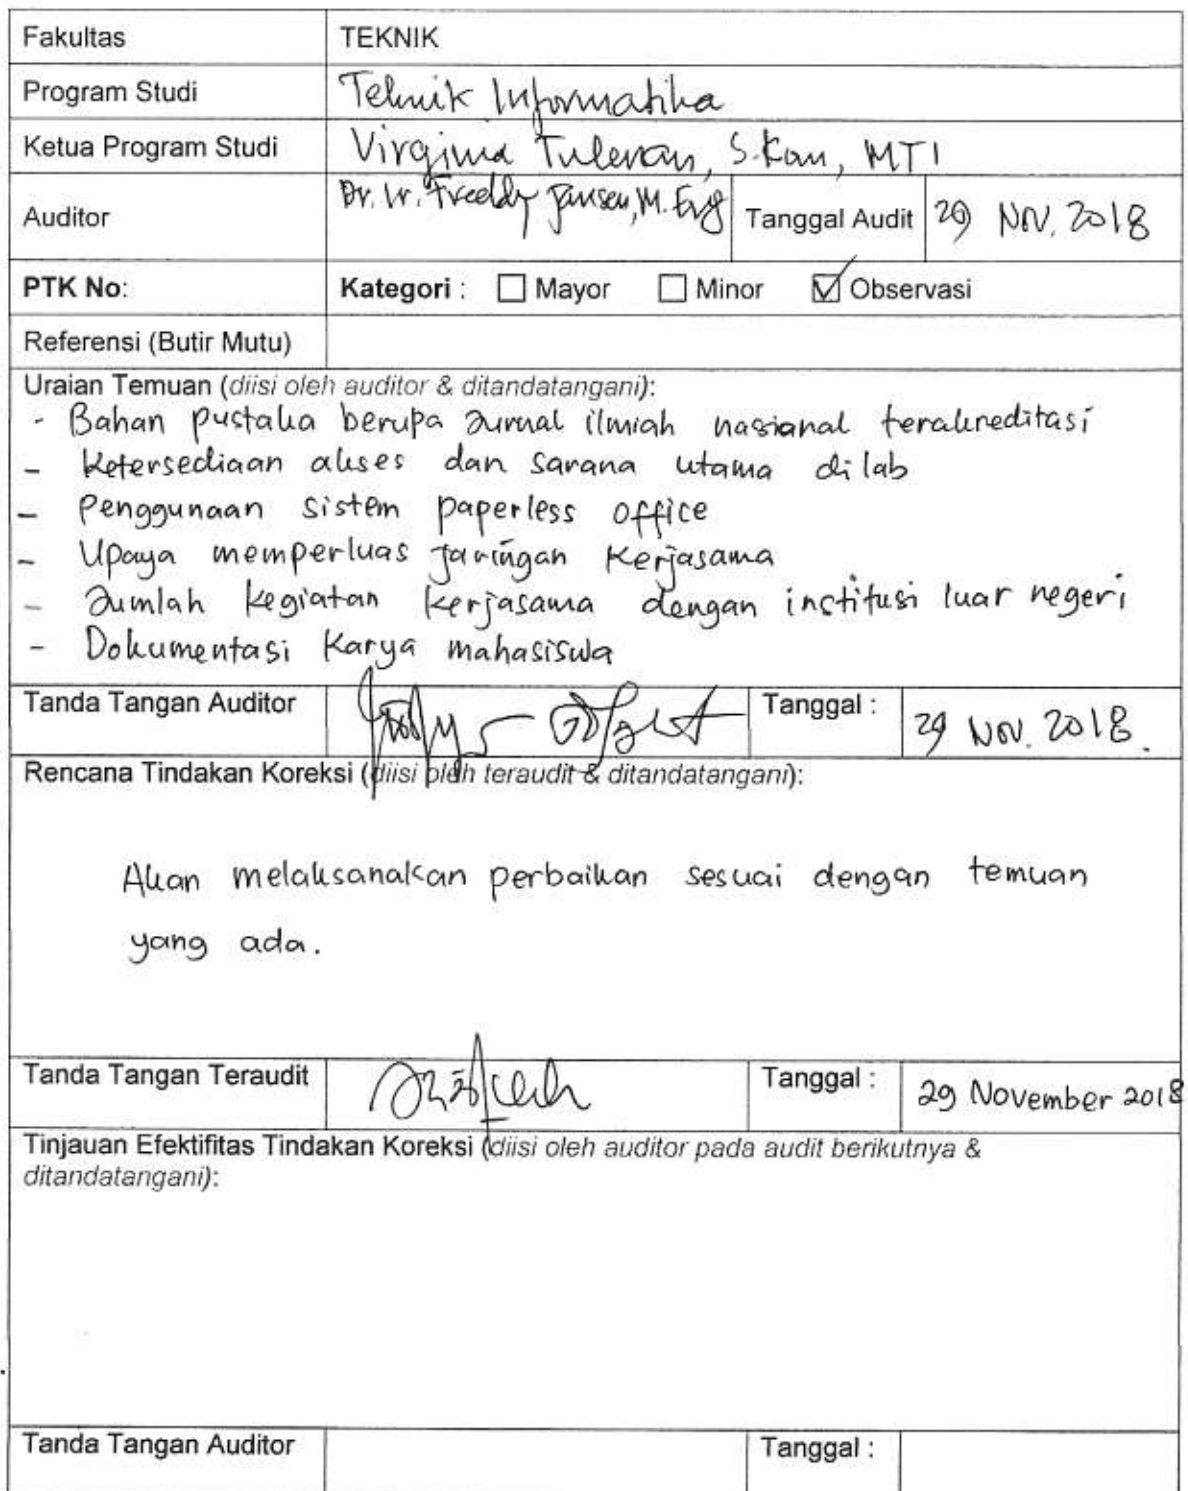 Fakultas TEKNIK
Program Studi Teknik Informatika
Ketua Program Studi Virginia Tulenan, S.Kom, MTI
Auditor Dr. Ir. Freddy Jansen, M. Eng Tanggal Audit 29 Nov. 2018
PTK No: Kategori : ☐ Mayor ☐ Minor ☑ Observasi
Referensi (Butir Mutu)
Uraian Temuan (diisi oleh auditor & ditandatangani):
- Bahan pustaka berupa Jurnal ilmiah nasional terakreditasi
- Ketersediaan akses dan sarana utama di lab
- Penggunaan sistem paperless office
- Upaya memperluas Jaringan Kerjasama
- Jumlah kegiatan kerjasama dengan institusi luar negeri
- Dokumentasi Karya mahasiswa
Tanda Tangan Auditor Tanggal : 29 Nov. 2018.
Rencana Tindakan Koreksi (diisi oleh teraudit & ditandatangani):
Akan melaksanakan perbaikan sesuai dengan temuan
yang ada.
Tanda Tangan Teraudit Tanggal : 29 November 2018
Tinjauan Efektifitas Tindakan Koreksi (diisi oleh auditor pada audit berikutnya &
ditandatangani):
Tanda Tangan Auditor Tanggal :